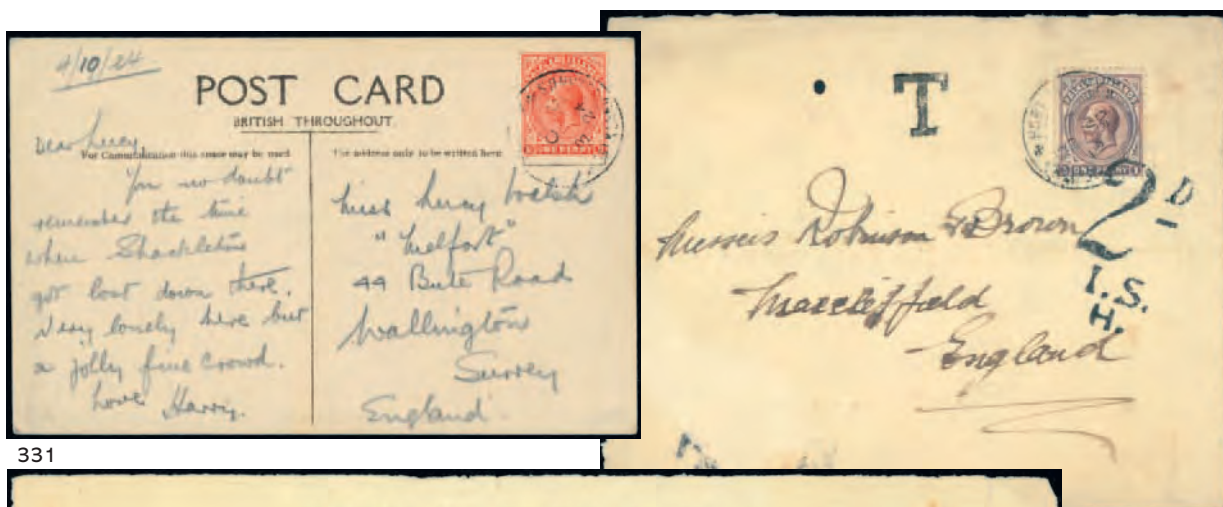 4/10/24
POST CARD
BRITISH THROUGHOUT.
For Communication this space may be used
The address only to be written here
Dear Lucy
You no doubt
remember the time
when Shackleton
got lost down there.
Very lonely here but
a jolly fine crowd.
Love Harry.
Miss Lucy
"Melfort"
44 Bute Road
Wallington
Surrey
England.
331
T
2D
I.S.
H.
Messrs Robinson & Brown
Macclesfield
England